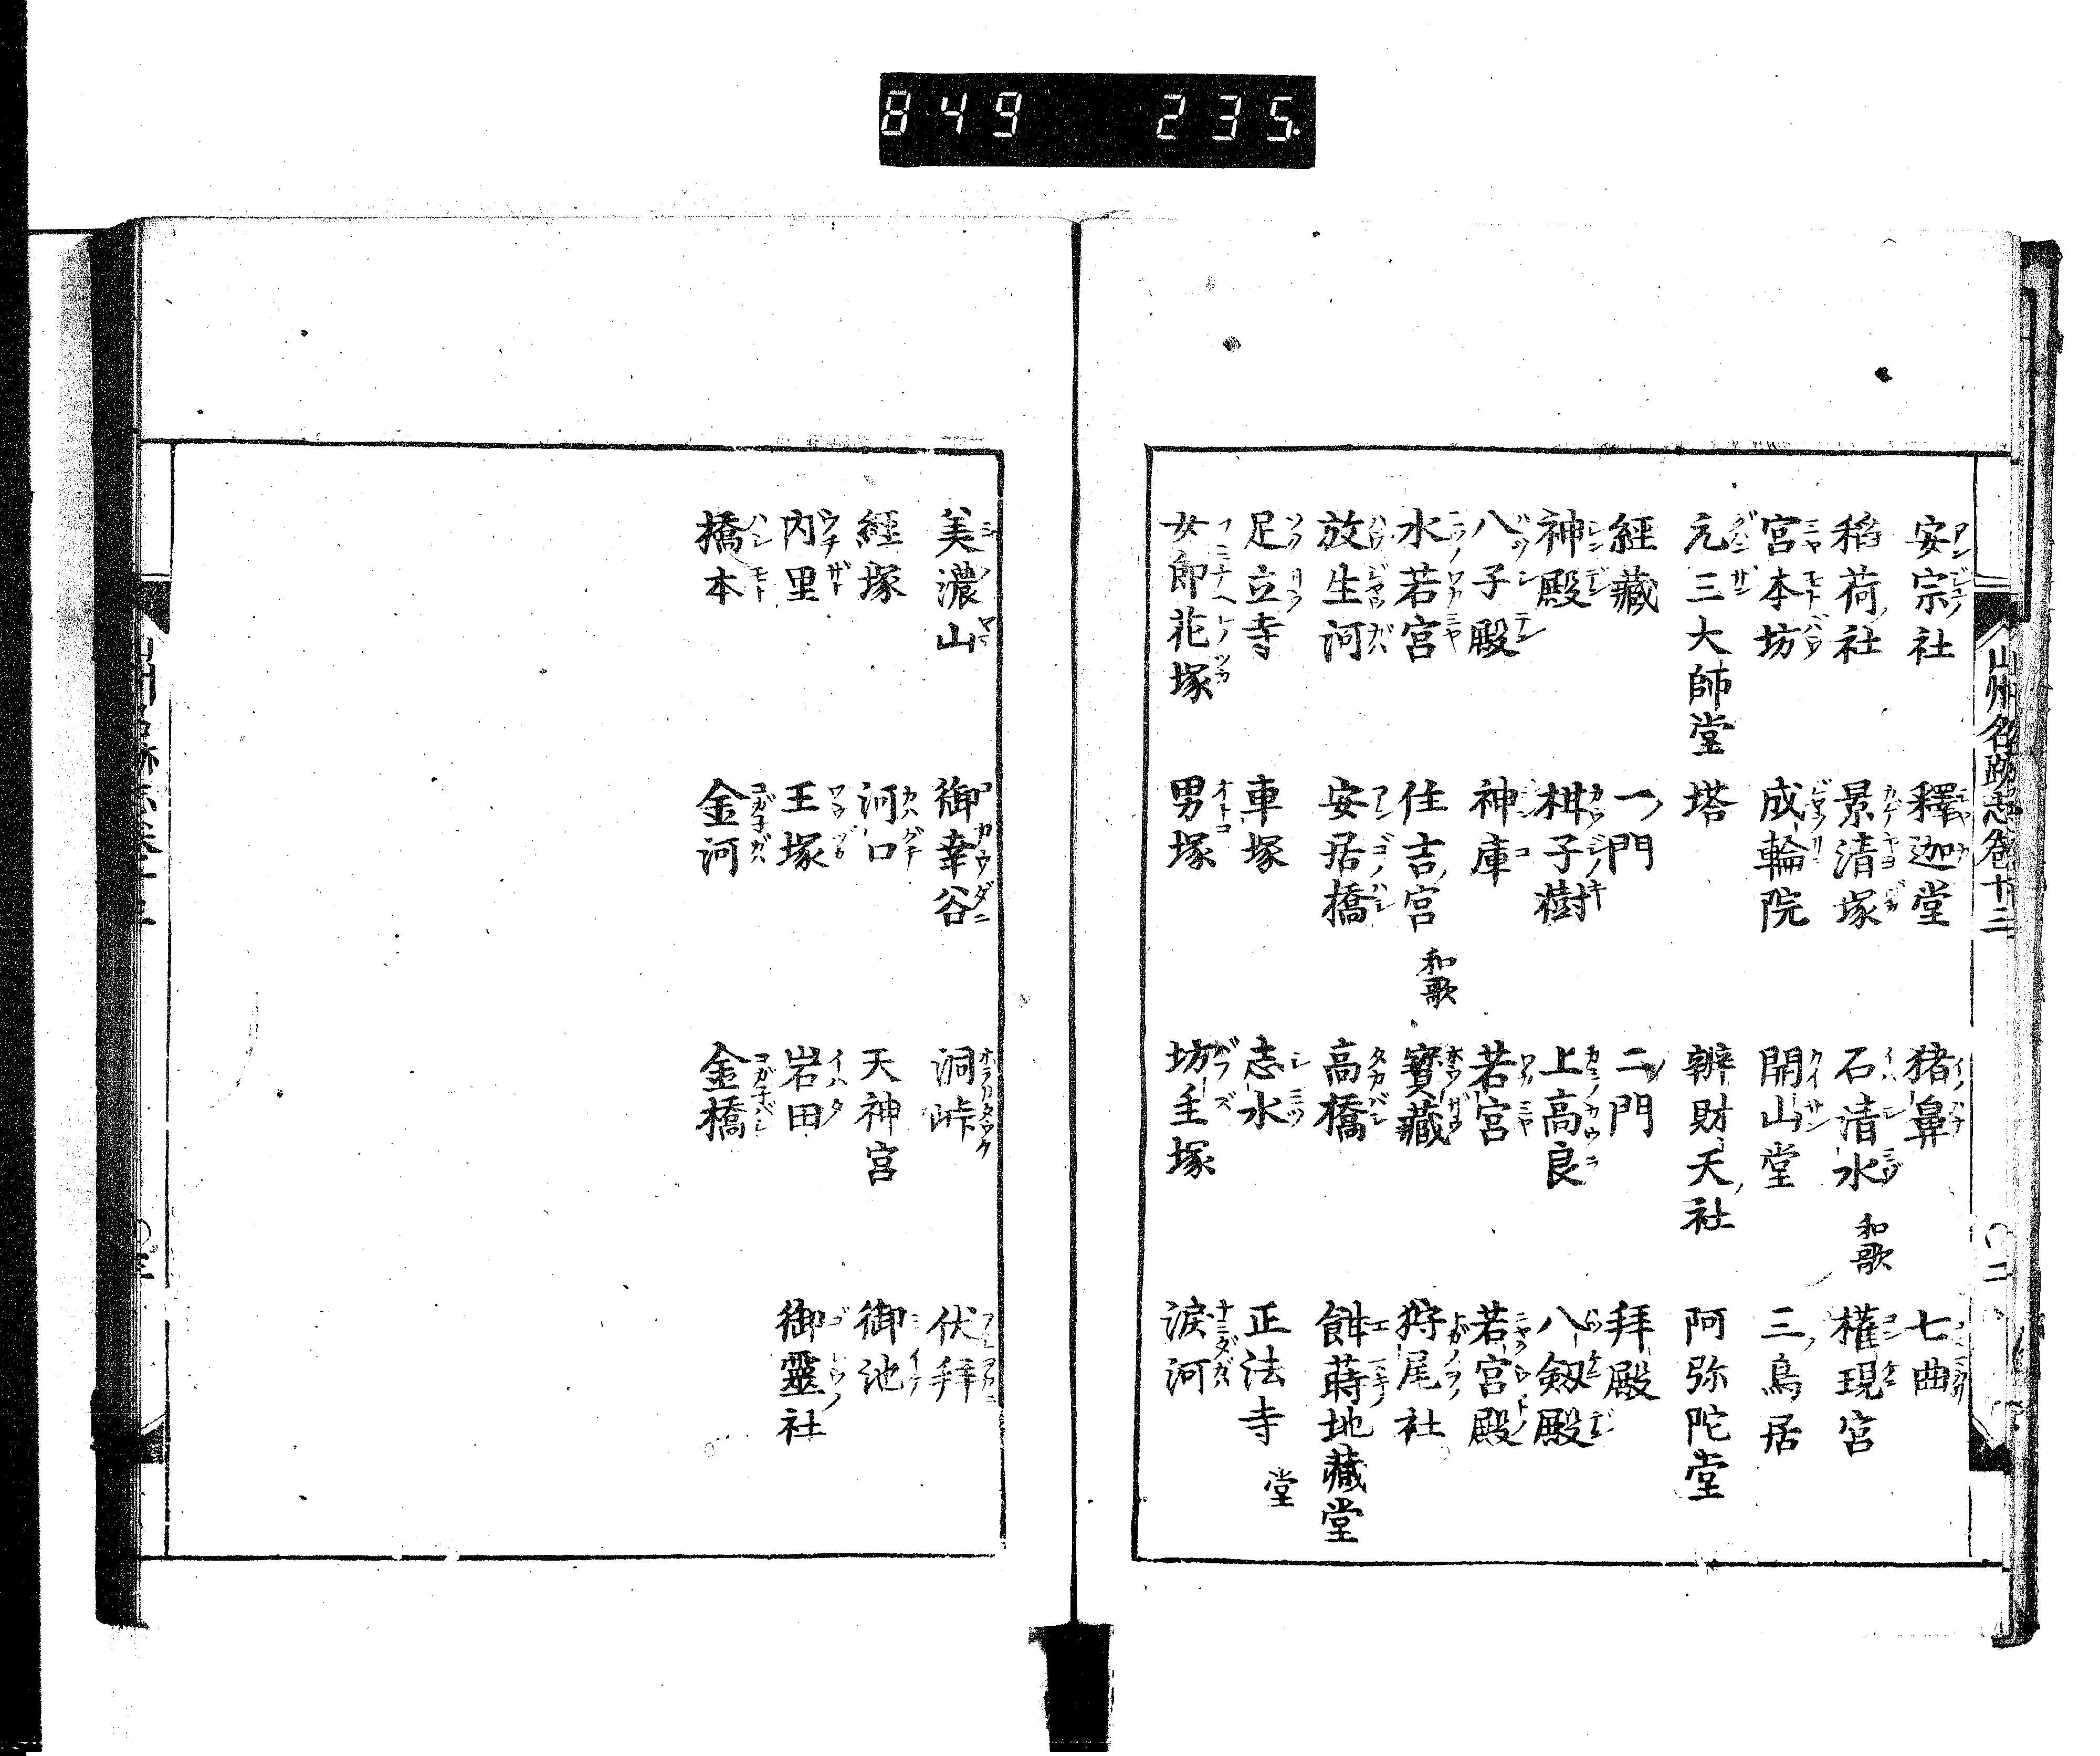 849 235
山州名跡志卷十二
〇二
安宗社 釋迦堂 猪鼻 七曲
稲荷社 景清塚 石清水 和歌 權現宮
宮本坊 成輪院 開山堂 三鳥居
元三大師堂 塔 辨財天社 阿弥陀堂
經藏 一門 二門 拜殿
神殿 柑子樹 上高良 八劔殿
八子殿 神庫 若宮 若宮殿
水若宮 住吉宮 和歌 寳藏 狩尾社
放生河 安居橋 高橋 餌蒔地藏堂
足立寺 車塚 志水 正法寺 堂
女郎花塚 男塚 坊主塚 涙河
美濃山 御幸谷 洞峠 伏拜
經塚 河口 天神宮 御池
内里 王塚 岩田 御靈社
橋本 金河 金橋